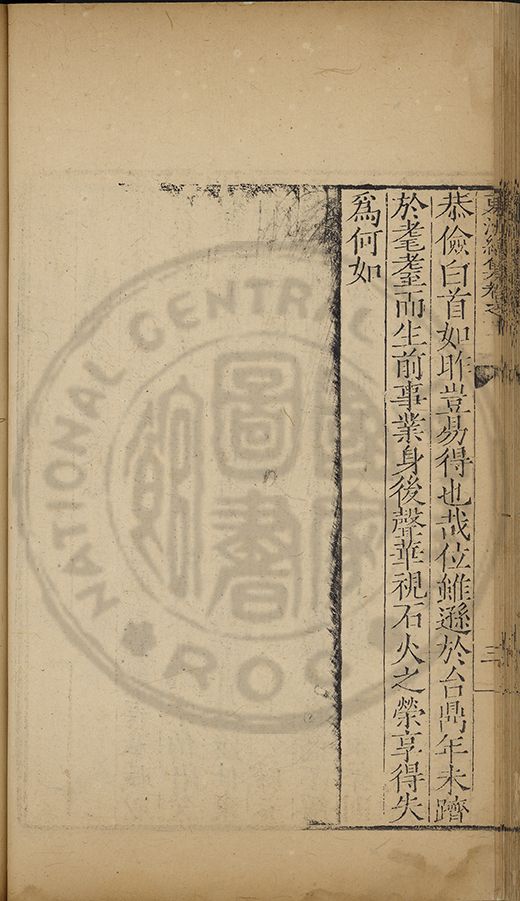 恭儉白首如昨豈易得也哉位雖遜於台鼎年未躋
於耄耋而生前事業身後聲華視石火之榮享得失
爲何如
三
NATIONAL CENTRAL
ROC
國家圖書